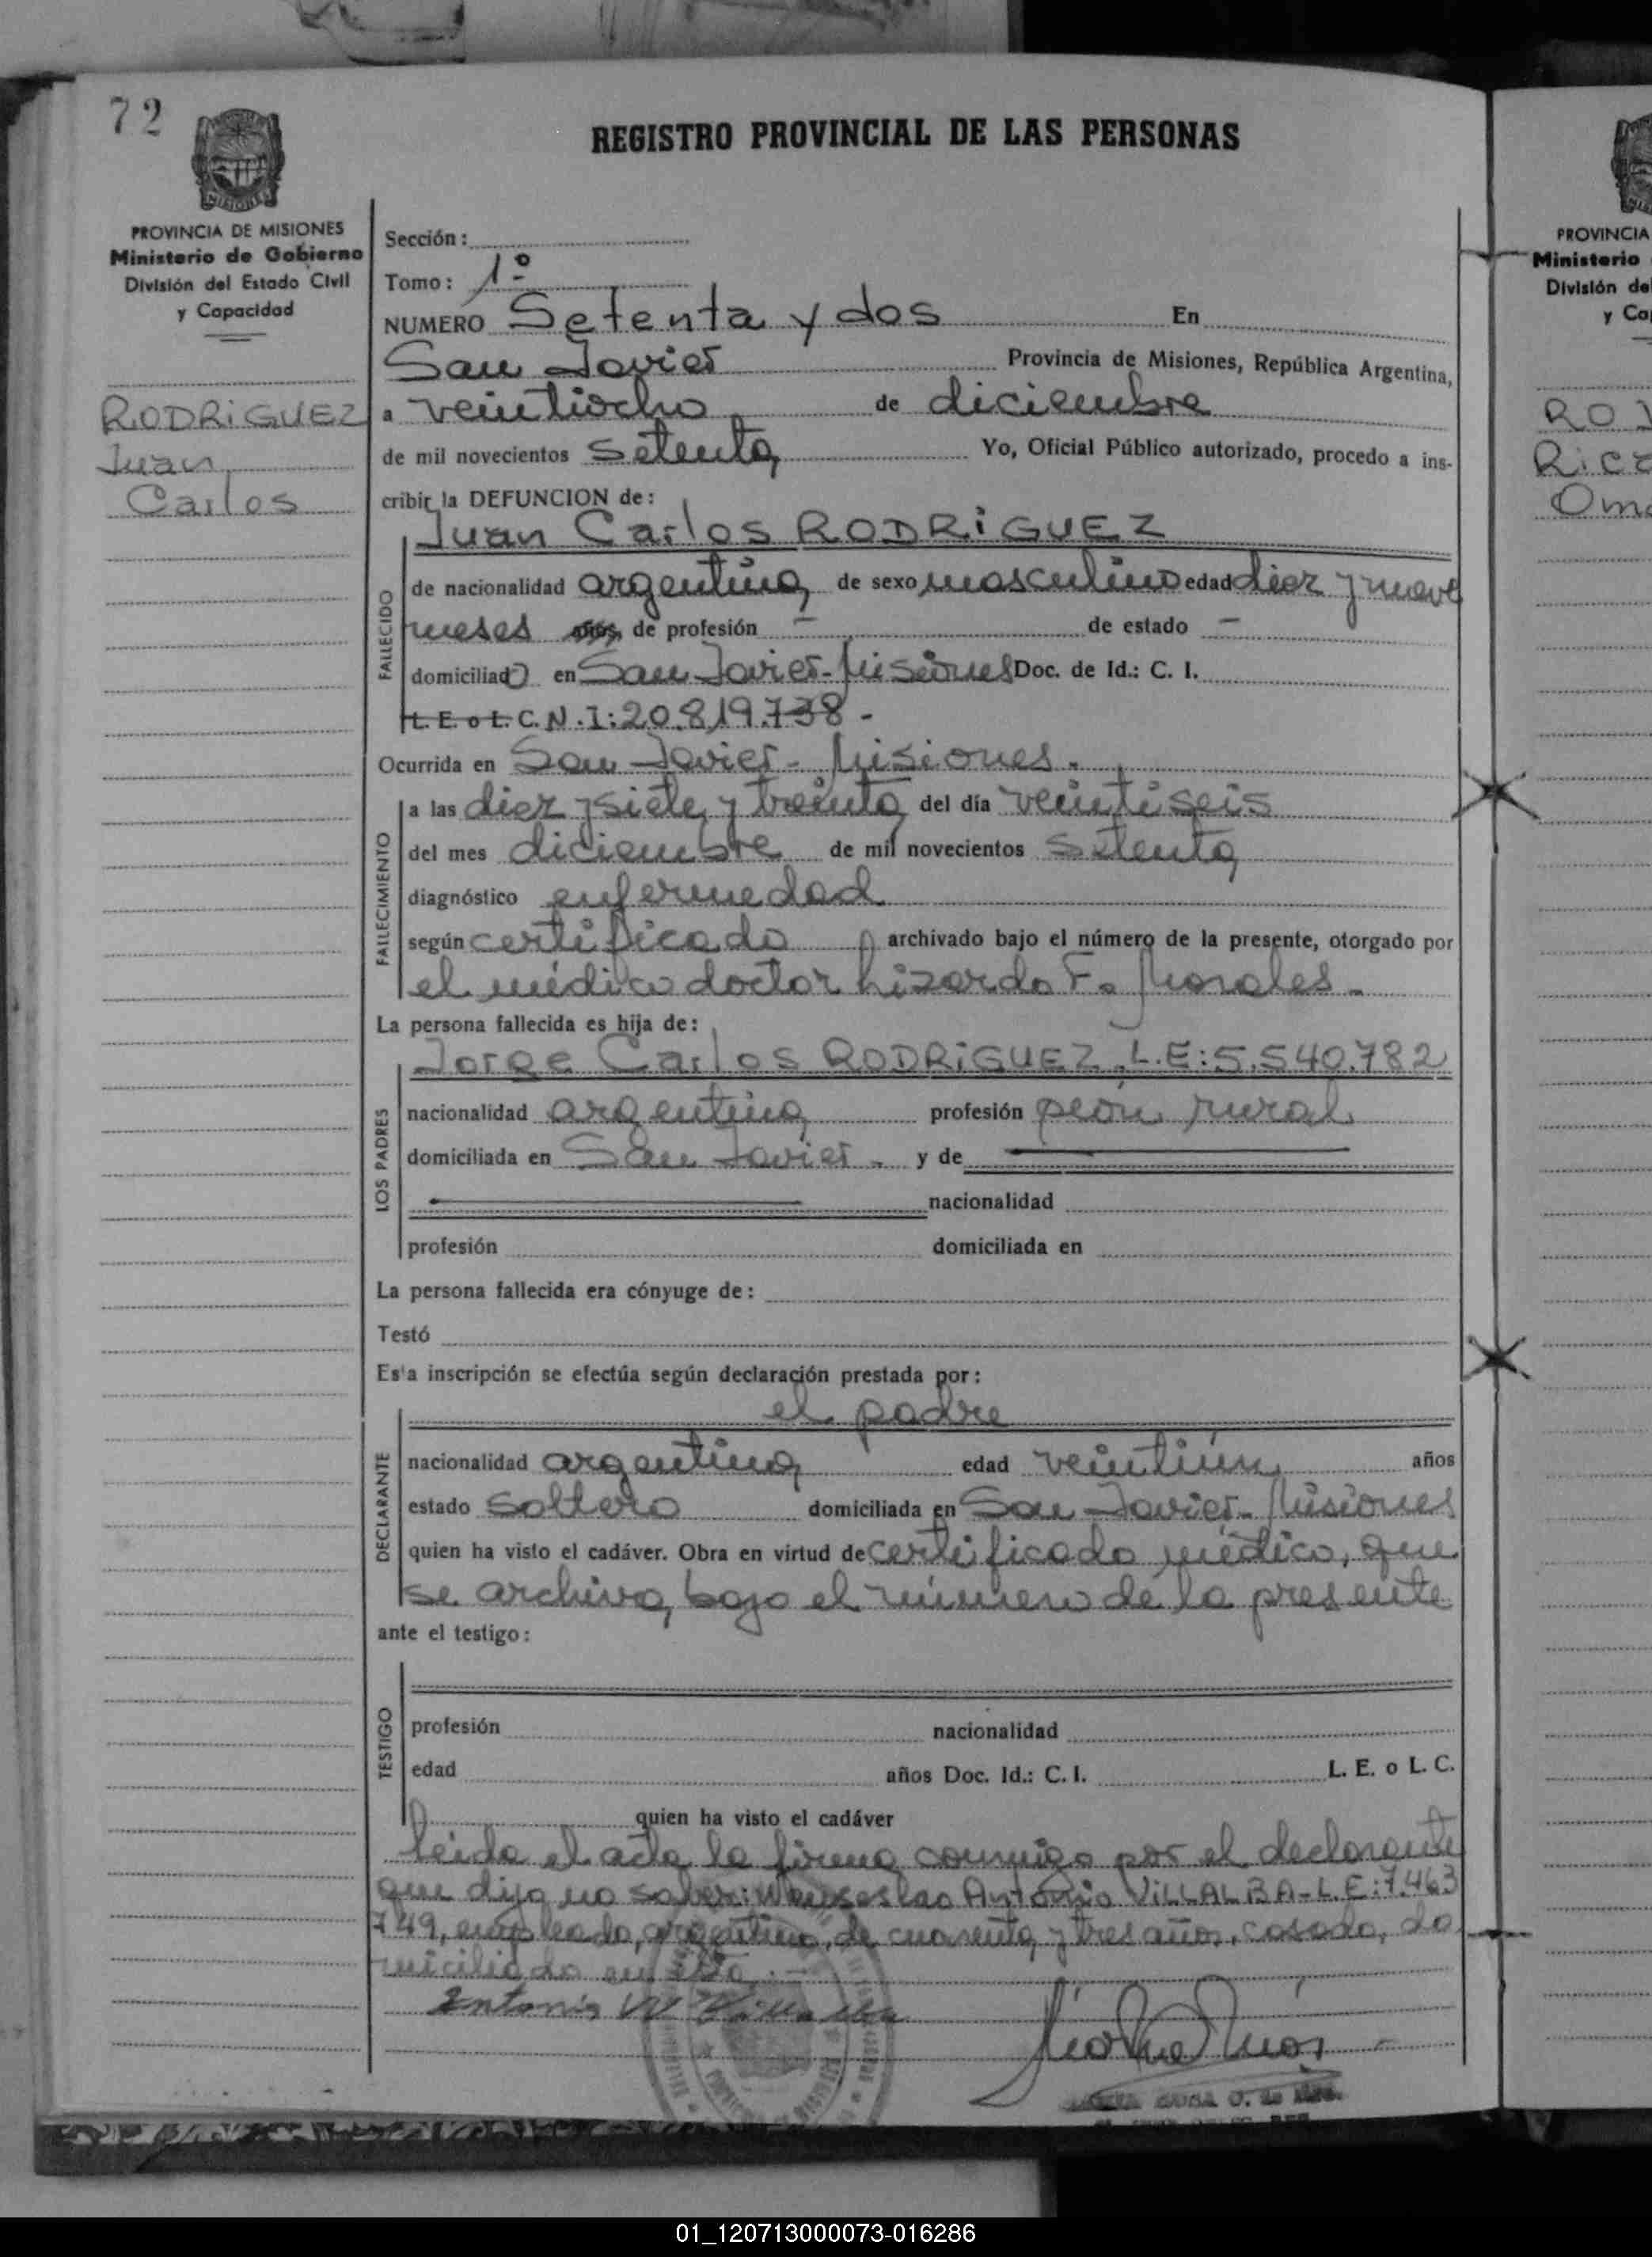 72
REGISTRO PROVINCIAL DE LAS PERSONAS
MISIONES
PROVINCIA DE MISIONES
Ministerio de Gobierno
División del Estado Civil
y Capacidad
RODRIGUEZ
Juan
Carlos
Sección:
Tomo: 1º
NUMERO Setenta y dos En
San Javier Provincia de Misiones, República Argentina,
a veintiocho de diciembre
de mil novecientos setenta Yo, Oficial Público autorizado, procedo a ins-
cribir la DEFUNCION de:
Juan Carlos RODRIGUEZ
FALLECIDO
de nacionalidad argentina de sexo masculino edad diez y nueve
meses años, de profesión - de estado -
domiciliado en San Javier-Misiones Doc. de Id.: C. I.
L. E. o L. C. N.I: 20.819.738 -
Ocurrida en San Javier - Misiones.
FALLECIMIENTO
a las diez y siete y treinta del día veintiseis
del mes diciembre de mil novecientos setenta
diagnóstico enfermedad
según certificado archivado bajo el número de la presente, otorgado por
el médico doctor Lisardo F. Morales.
La persona fallecida es hija de:
Jorge Carlos RODRIGUEZ. L.E: 5.540.782
LOS PADRES
nacionalidad argentina profesión peón rural
domiciliada en San Javier - y de
nacionalidad
profesión domiciliada en
La persona fallecida era cónyuge de:
Testó
Esta inscripción se efectúa según declaración prestada por:
el padre
DECLARANTE
nacionalidad argentina edad veintiún años
estado soltero domiciliada en San Javier-Misiones
quien ha visto el cadáver. Obra en virtud de certificado médico, que
se archiva, bajo el número de la presente
ante el testigo:
TESTIGO
profesión nacionalidad
edad años Doc. Id.: C. I. L. E. o L. C.
quien ha visto el cadáver
leída el acta la firma conmigo por el declarante
que dijo no saber: Wenseslao Antonio VILLALBA-L.E: 7.463
749, empleado, argentino, de cuarenta y tres años, casado, do
miciliado en ésta.-
Antonio W Villalba
PROVINCIA
Ministerio
División de
y Ca
RO
Ric
Oma
01_120713000073-016286